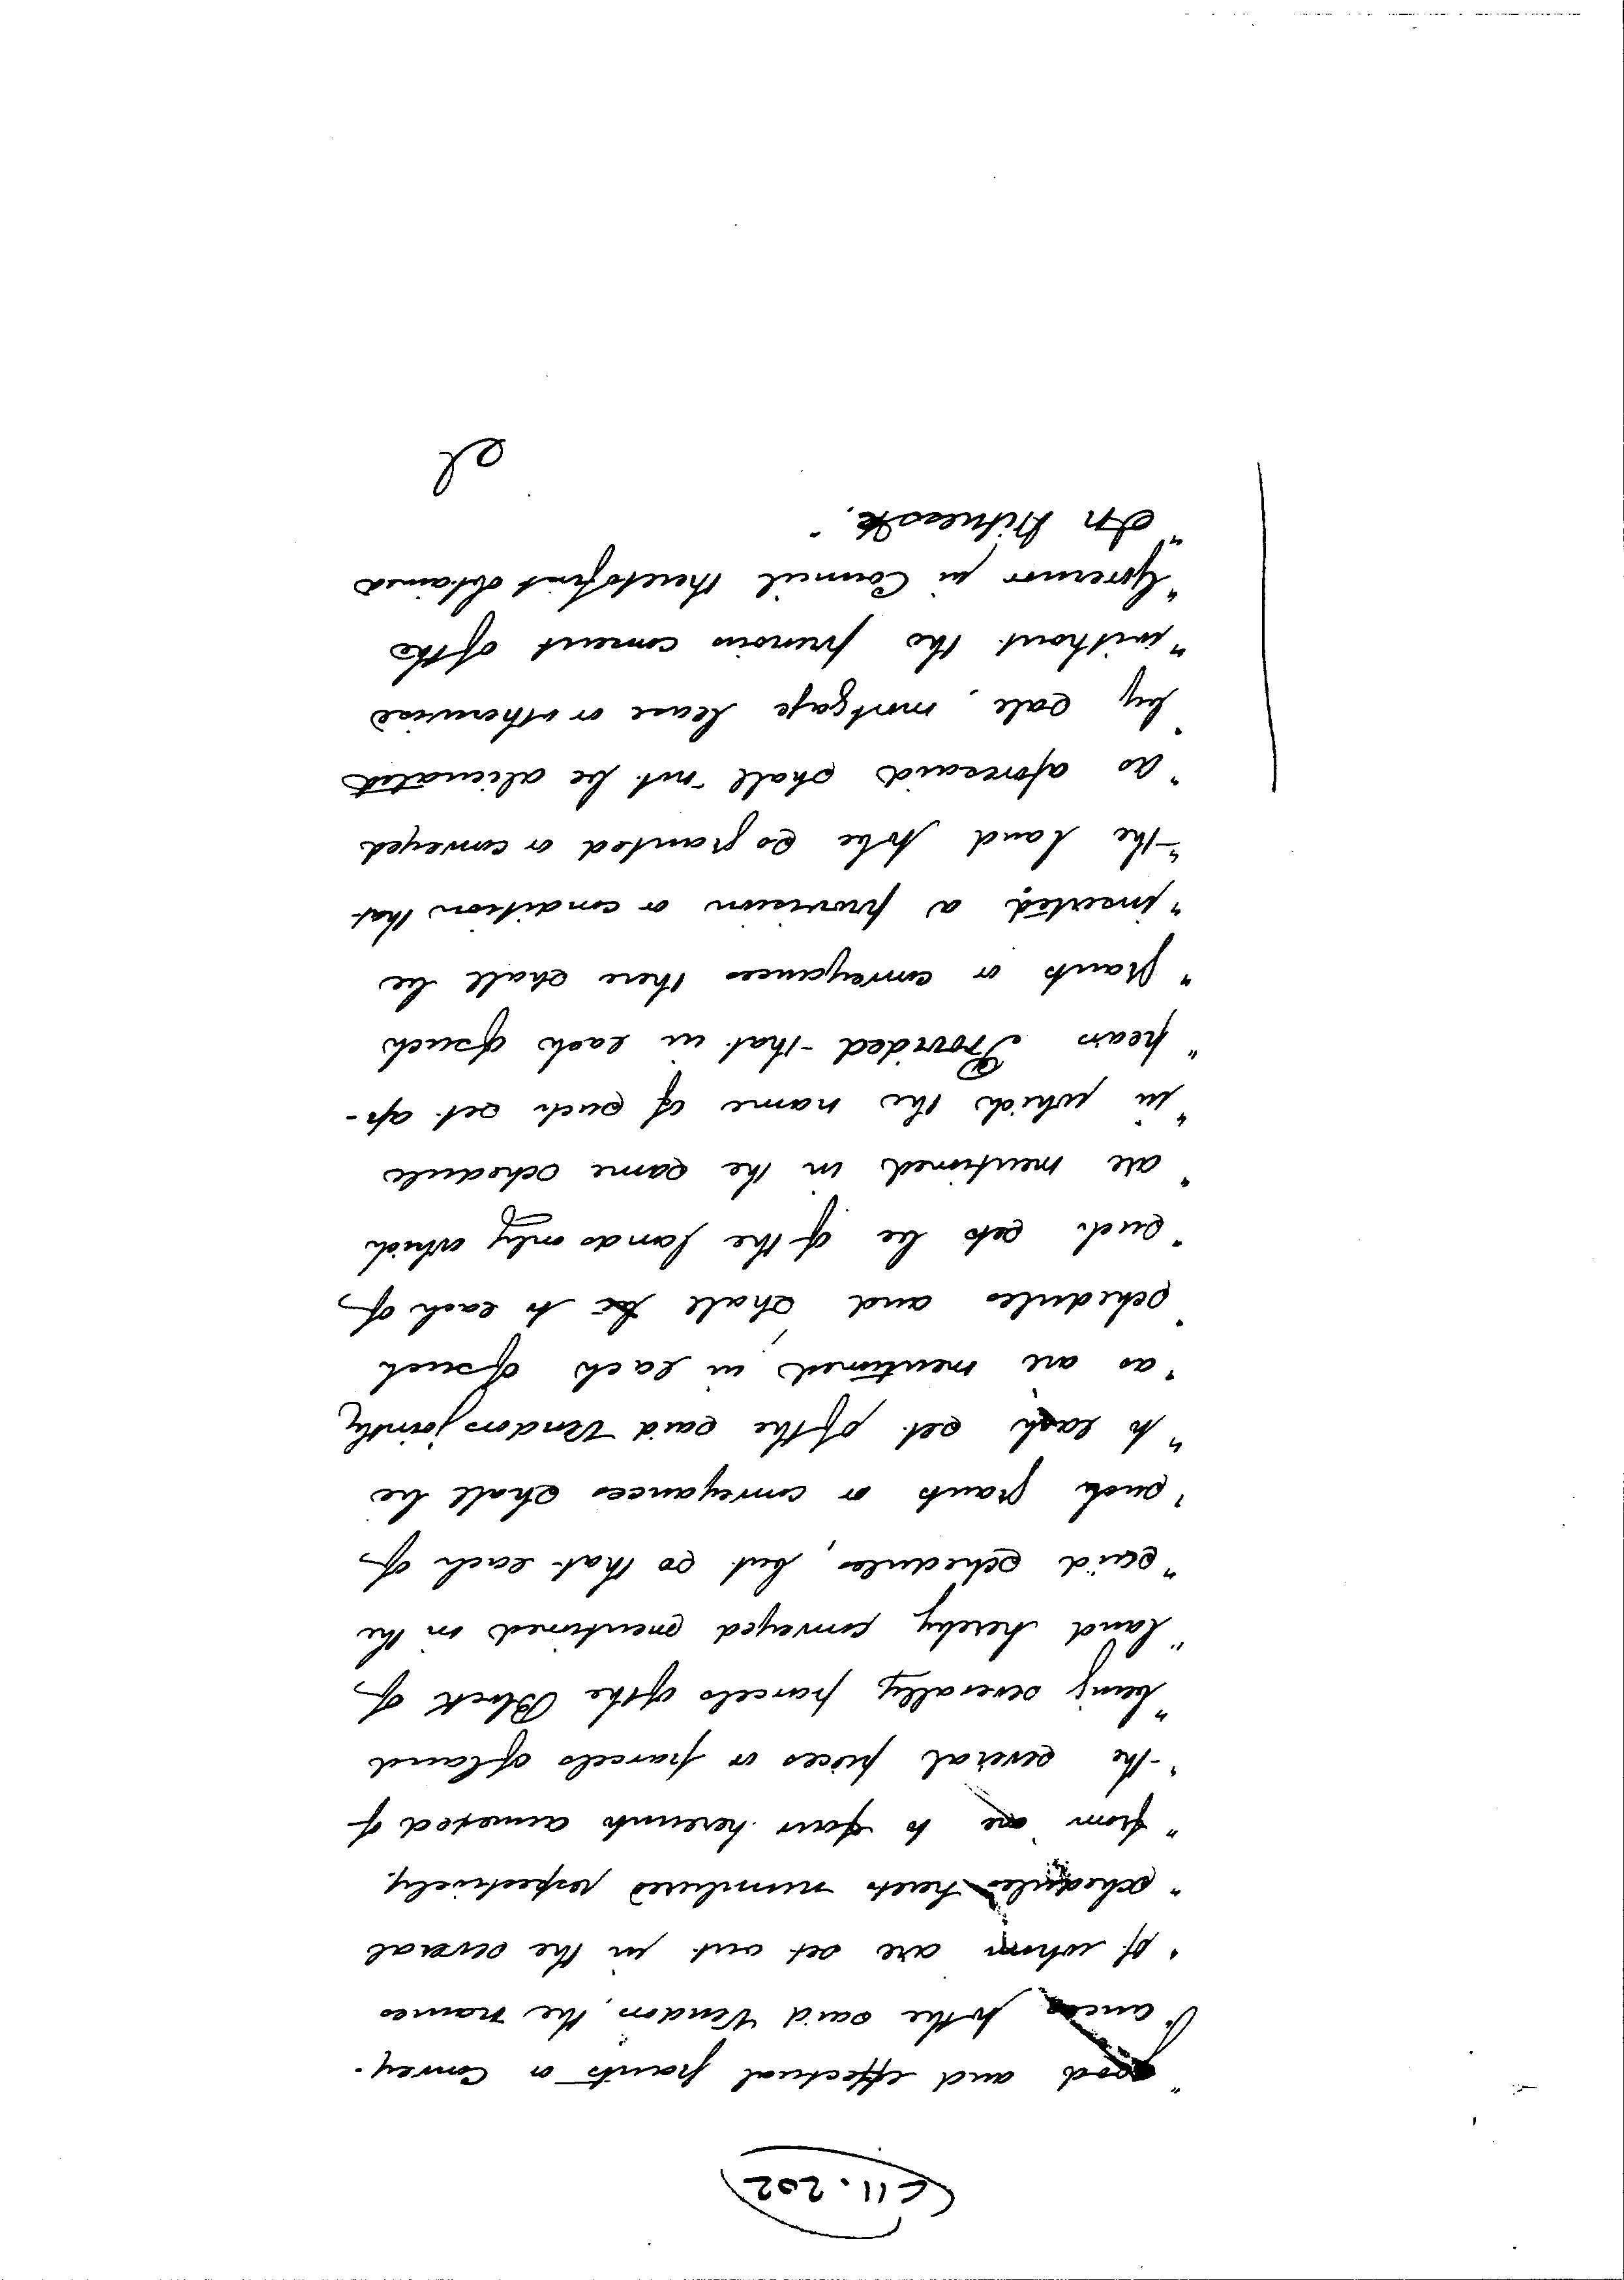 E11.202
"good and effectual grants or Convey-
"ances to the said Vendors, the names
"of whom are set out in the several
"schedules hereto numbered respectively
"from one to four hereunto annexed of
"the several pieces or parcels of land
"being severally parcels of the Block of
"land hereby conveyed mentioned in the
"said schedules, but so that each of
"such grants or conveyances shall be
"to each set of the said Vendors jointly
"as are mentioned in each of such
"schedules and shall be to each of
"such sets be of the lands only which
"are mentioned in the same schedule
"in which the name of such set ap-
"pears Provided that in each of such
"grants or conveyances there shall be
"inserted a provision or condition that
"the land to be so granted or conveyed
"as aforesaid shall not be alienated
"by sale, mortgage lease or otherwise
"without the previous consent of the
"Governor in Council thereto first obtained
"In Witness &c."